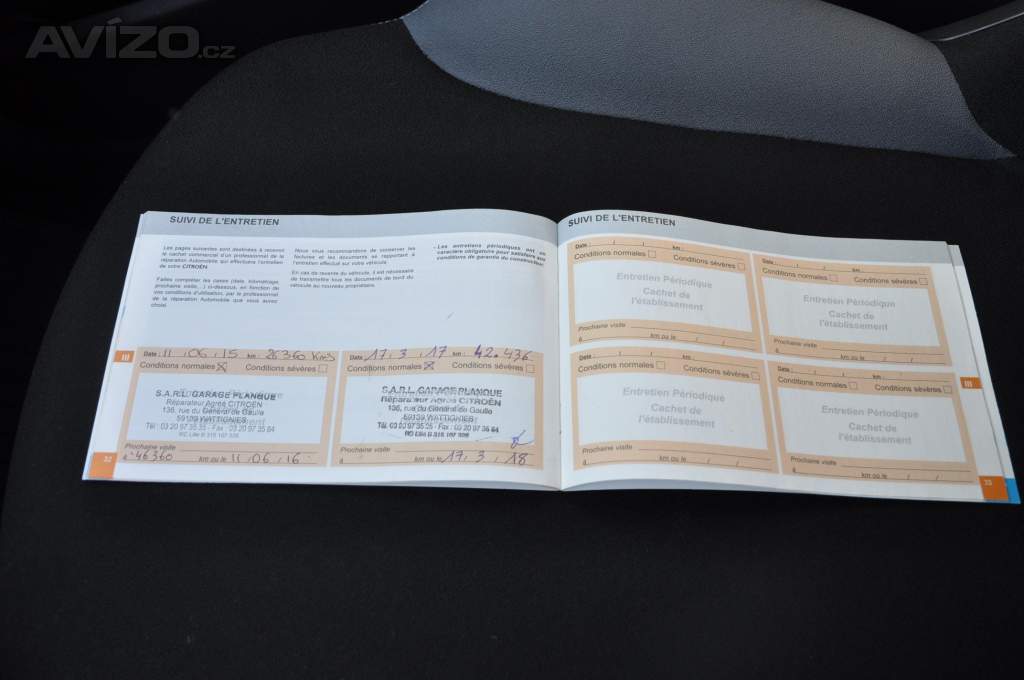 AVÍZO.cz
SUIVI DE L'ENTRETIEN
Les pages suivantes sont destinées à recevoir
le cachet commercial d'un professionnel de la
réparation Automobile qui effectuera l'entretien
de votre CITROËN.
Faites compléter les cases (date, kilométrage,
prochaine visite,...) ci-dessous, en fonction de
vos conditions d'utilisation, par le professionnel
de la réparation Automobile que vous aurez
choisi.
Nous vous recommandons de conserver les
factures et les documents se rapportant à
l'entretien effectué sur votre véhicule.
En cas de revente du véhicule, il est nécessaire
de transmettre tous les documents de bord du
véhicule au nouveau propriétaire.
- Les entretiens périodiques ont un
caractère obligatoire pour satisfaire aux
conditions de garantie du constructeur.
III
Date : 11 . 06 , 15 km : 26360 Kms
Conditions normales Conditions sévères
S.A.R.L. GARAGE PLANQUE
Réparateur Agréé CITROËN
136, rue du Général de Gaulle
59139 WATTIGNIES
Tél : 03 20 97 35 35 - Fax : 03 20 97 35 84
RC Lille B 318 167 308
Prochaine visite
à 46360 km ou le 11 . 06 . 16
32
Date : 17 . 3 , 17 km : 42.436
Conditions normales Conditions sévères
S.A.R.L. GARAGE PLANQUE
Réparateur Agréé CITROËN
136, rue du Général de Gaulle
59139 WATTIGNIES
Tél. 03 20 97 35 35 - Fax 03 20 97 35 84
RC Lille B 318 167 308
Prochaine visite
à km ou le 17 . 3 . 18
SUIVI DE L'ENTRETIEN
Date : / / km :
Conditions normales Conditions sévères
Entretien Périodique
Cachet de
l'établissement
Prochaine visite
à km ou le / /
Date : / / km :
Conditions normales Conditions sévères
Entretien Périodique
Cachet de
l'établissement
Prochaine visite
à km ou le / /
Date : / / km :
Conditions normales Conditions sévères
Entretien Périodique
Cachet de
l'établissement
Prochaine visite
à km ou le / /
Date : / / km :
Conditions normales Conditions sévères
Entretien Périodique
Cachet de
l'établissement
Prochaine visite
à km ou le / /
III
33